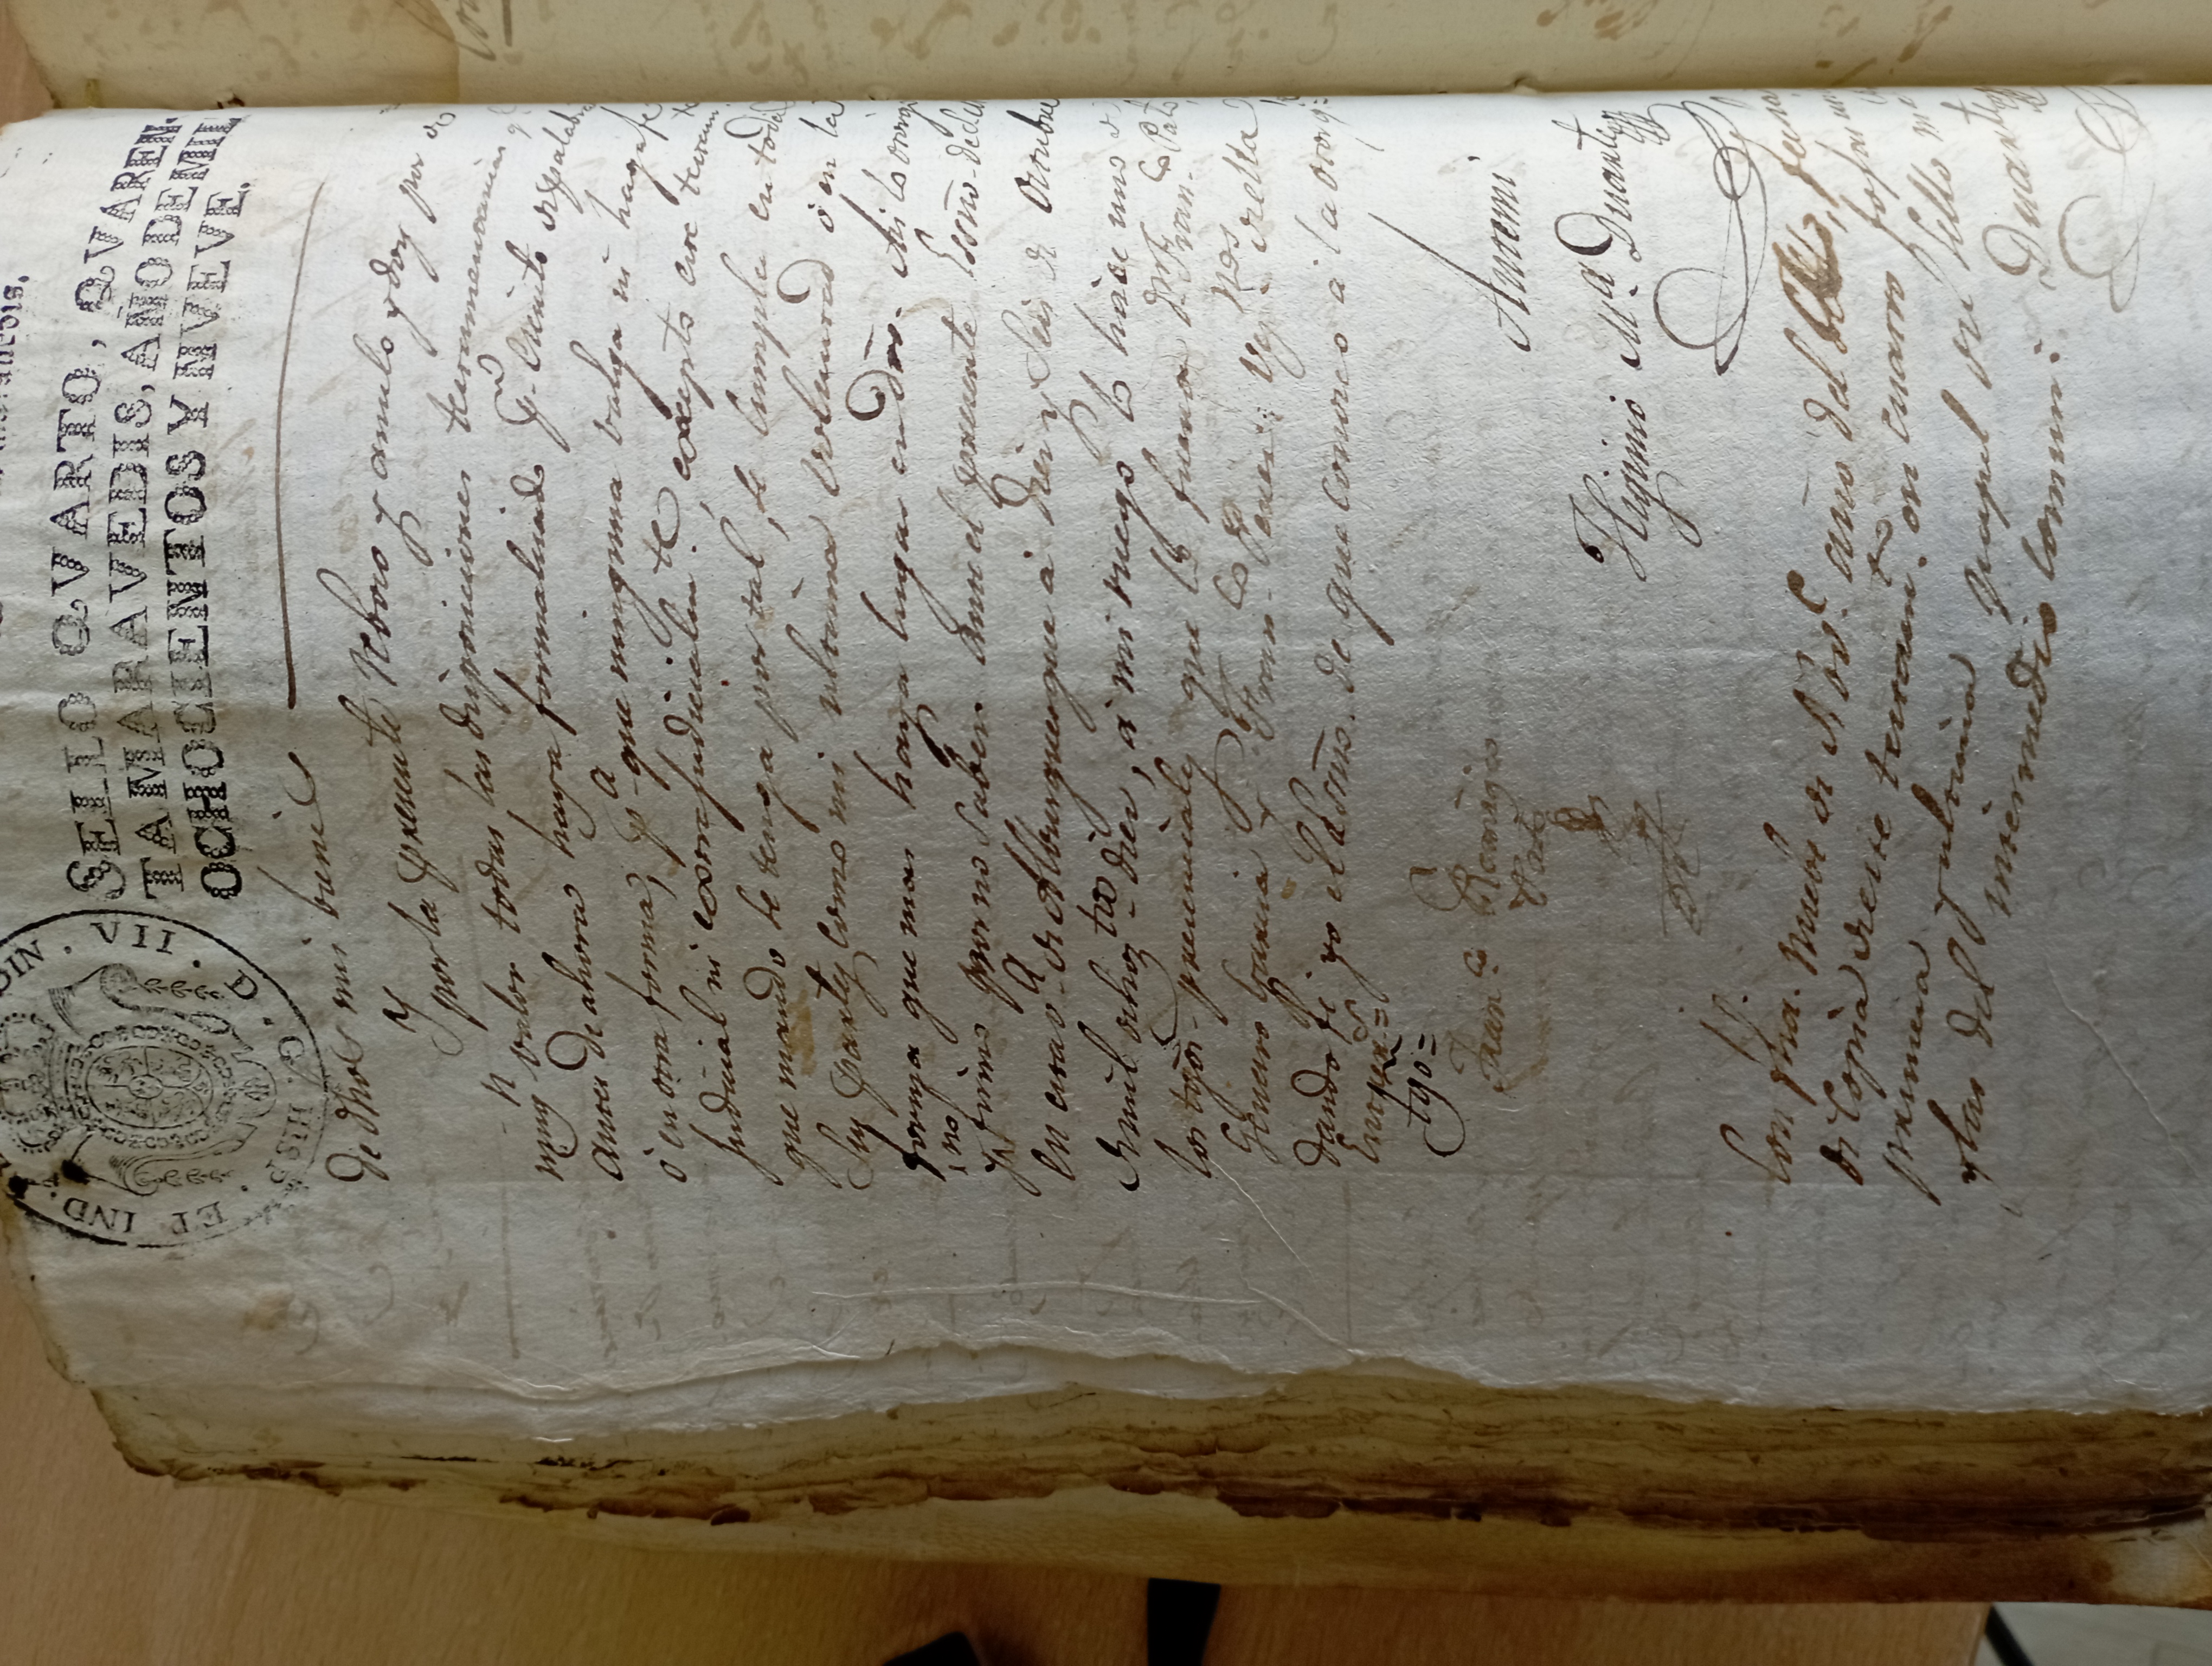 maravedis.
DIN . VII . D . G . HISP . ET IND .
SELLO QVARTO, QVAREN-
TA MARAVEDIS, AÑO DE MIL
OCHOCIENTOS Y NVEVE.
de dhos mis bienes
Y por la presente reboco y anulo y doy por de
ning.n valor todas las disposiciones testamentarias q.
antes de ahora haya formalizado p.r escrito de palabra
ó en otra forma, p.a que ninguna valga ni haga fe
Judicial ni extrajudicialm.te, excepto este testam.to
que mando se tenga por tal, se cumpla en todas
sus partes como mi ultima voluntad ó en la
forma que mas haya lugar en dro. Asi lo otorgo
y no firmo por no saber ante el presente Essño. de
en esta v.a de Alburquerque á diez y seis de Octubre
de mil ochoz.tos diez, á mi ruego lo hace uno de
los tgos. presenciales que lo fueron d.n Fran.co Pato,
Genaro Garcia y Fran.co Perez, vez.nos de ella
dando fe yo el Essño. de que conozco á la otorg.te=
Entre
tgo=
Fran.co Remigio
Pato
Antemi
Higinio M.a Duarte
Con fha. nuebe de Nov.e año del
di Copia de este testam.to en cuatro fojas
primera y ultima papel del sello
y las del intermedio comun. Duarte